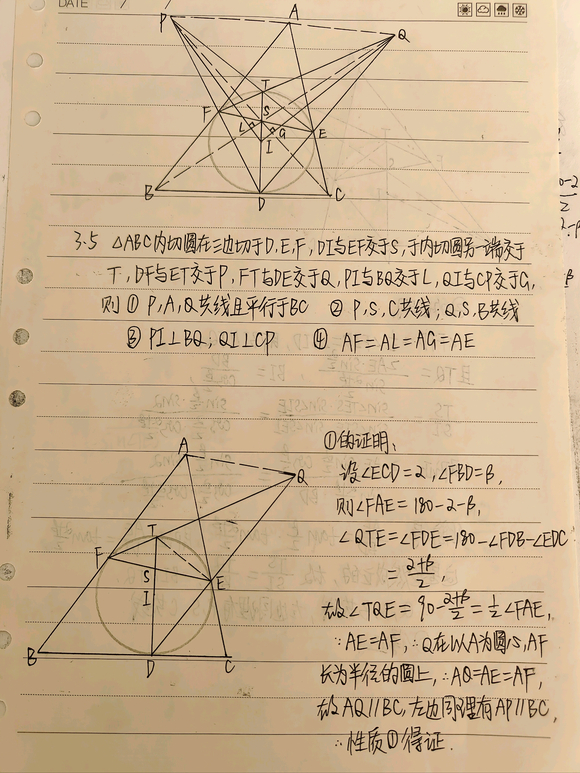 DATE / /
P
A
Q
T
F
S
L
G
E
I
B
D
C
3.5 △ABC内切圆在三边切于D,E,F, DI与EF交于S,于内切圆另一端交于
T, DF与ET交于P, FT与DE交于Q, PI与BQ交于L, QI与CP交于G,
则 ① P,A,Q共线且平行于BC ② P,S,C共线; Q,S,B共线
③ PI⊥BQ; QI⊥CP ④ AF=AL=AG=AE
①的证明:
设∠ECD=2, ∠FBD=β,
则∠FAE=180-2-β,
∠QTE=∠FDE=180-∠FDB-∠EDC
=2+β/2,
故∠TQE=90-2+β/2=1/2∠FAE,
∵AE=AF, ∴Q在以A为圆心,AF
长为半径的圆上, ∴AQ=AE=AF,
故AQ//BC, 左边同理有AP//BC,
∴性质①得证.
A
Q
T
F
S
E
I
B
D
C